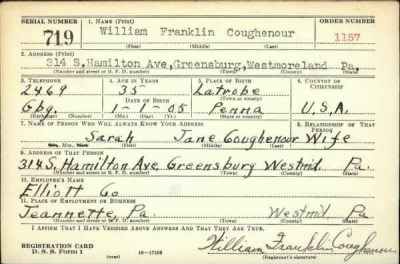 SERIAL NUMBER 1. NAME (Print) ORDER NUMBER
719 William Franklin Coughenour 1157
(First) (Middle) (Last)
2. ADDRESS (Print)
314 S,Hamilton Ave,Greensburg,Westmoreland Pa.
(Number and street or R. F. D. number) (Town) (County) (State)
3. TELEPHONE 4. AGE IN YEARS 5. PLACE OF BIRTH 6. COUNTRY OF CITIZENSHIP
2469 35 Latrobe
DATE OF BIRTH (Town or county)
Gbg. 1-1-05 Penna U.S.A.
(Exchange) (Mo.) (Day) (Yr.) (State or country)
7. NAME OF PERSON WHO WILL ALWAYS KNOW YOUR ADDRESS 8. RELATIONSHIP OF THAT PERSON
Sarah Jane Coughenour Wife
(First) (Middle) (Last)
9. ADDRESS OF THAT PERSON
314 S, Hamilton Ave, Greensburg Westmd. Pa.
(Number and street or R. F. D. number) (Town) (County) (State)
10. EMPLOYER'S NAME
Elliott Co
11. PLACE OF EMPLOYMENT OR BUSINESS
Jeannette, Pa. Westmd, Pa
(Number and street or R. F. D. number) (Town) (County) (State)
I AFFIRM THAT I HAVE VERIFIED ABOVE ANSWERS AND THAT THEY ARE TRUE.
REGISTRATION CARD
D. S. S. Form 1 (over) William Franklin Coughenour
(Registrant's signature)